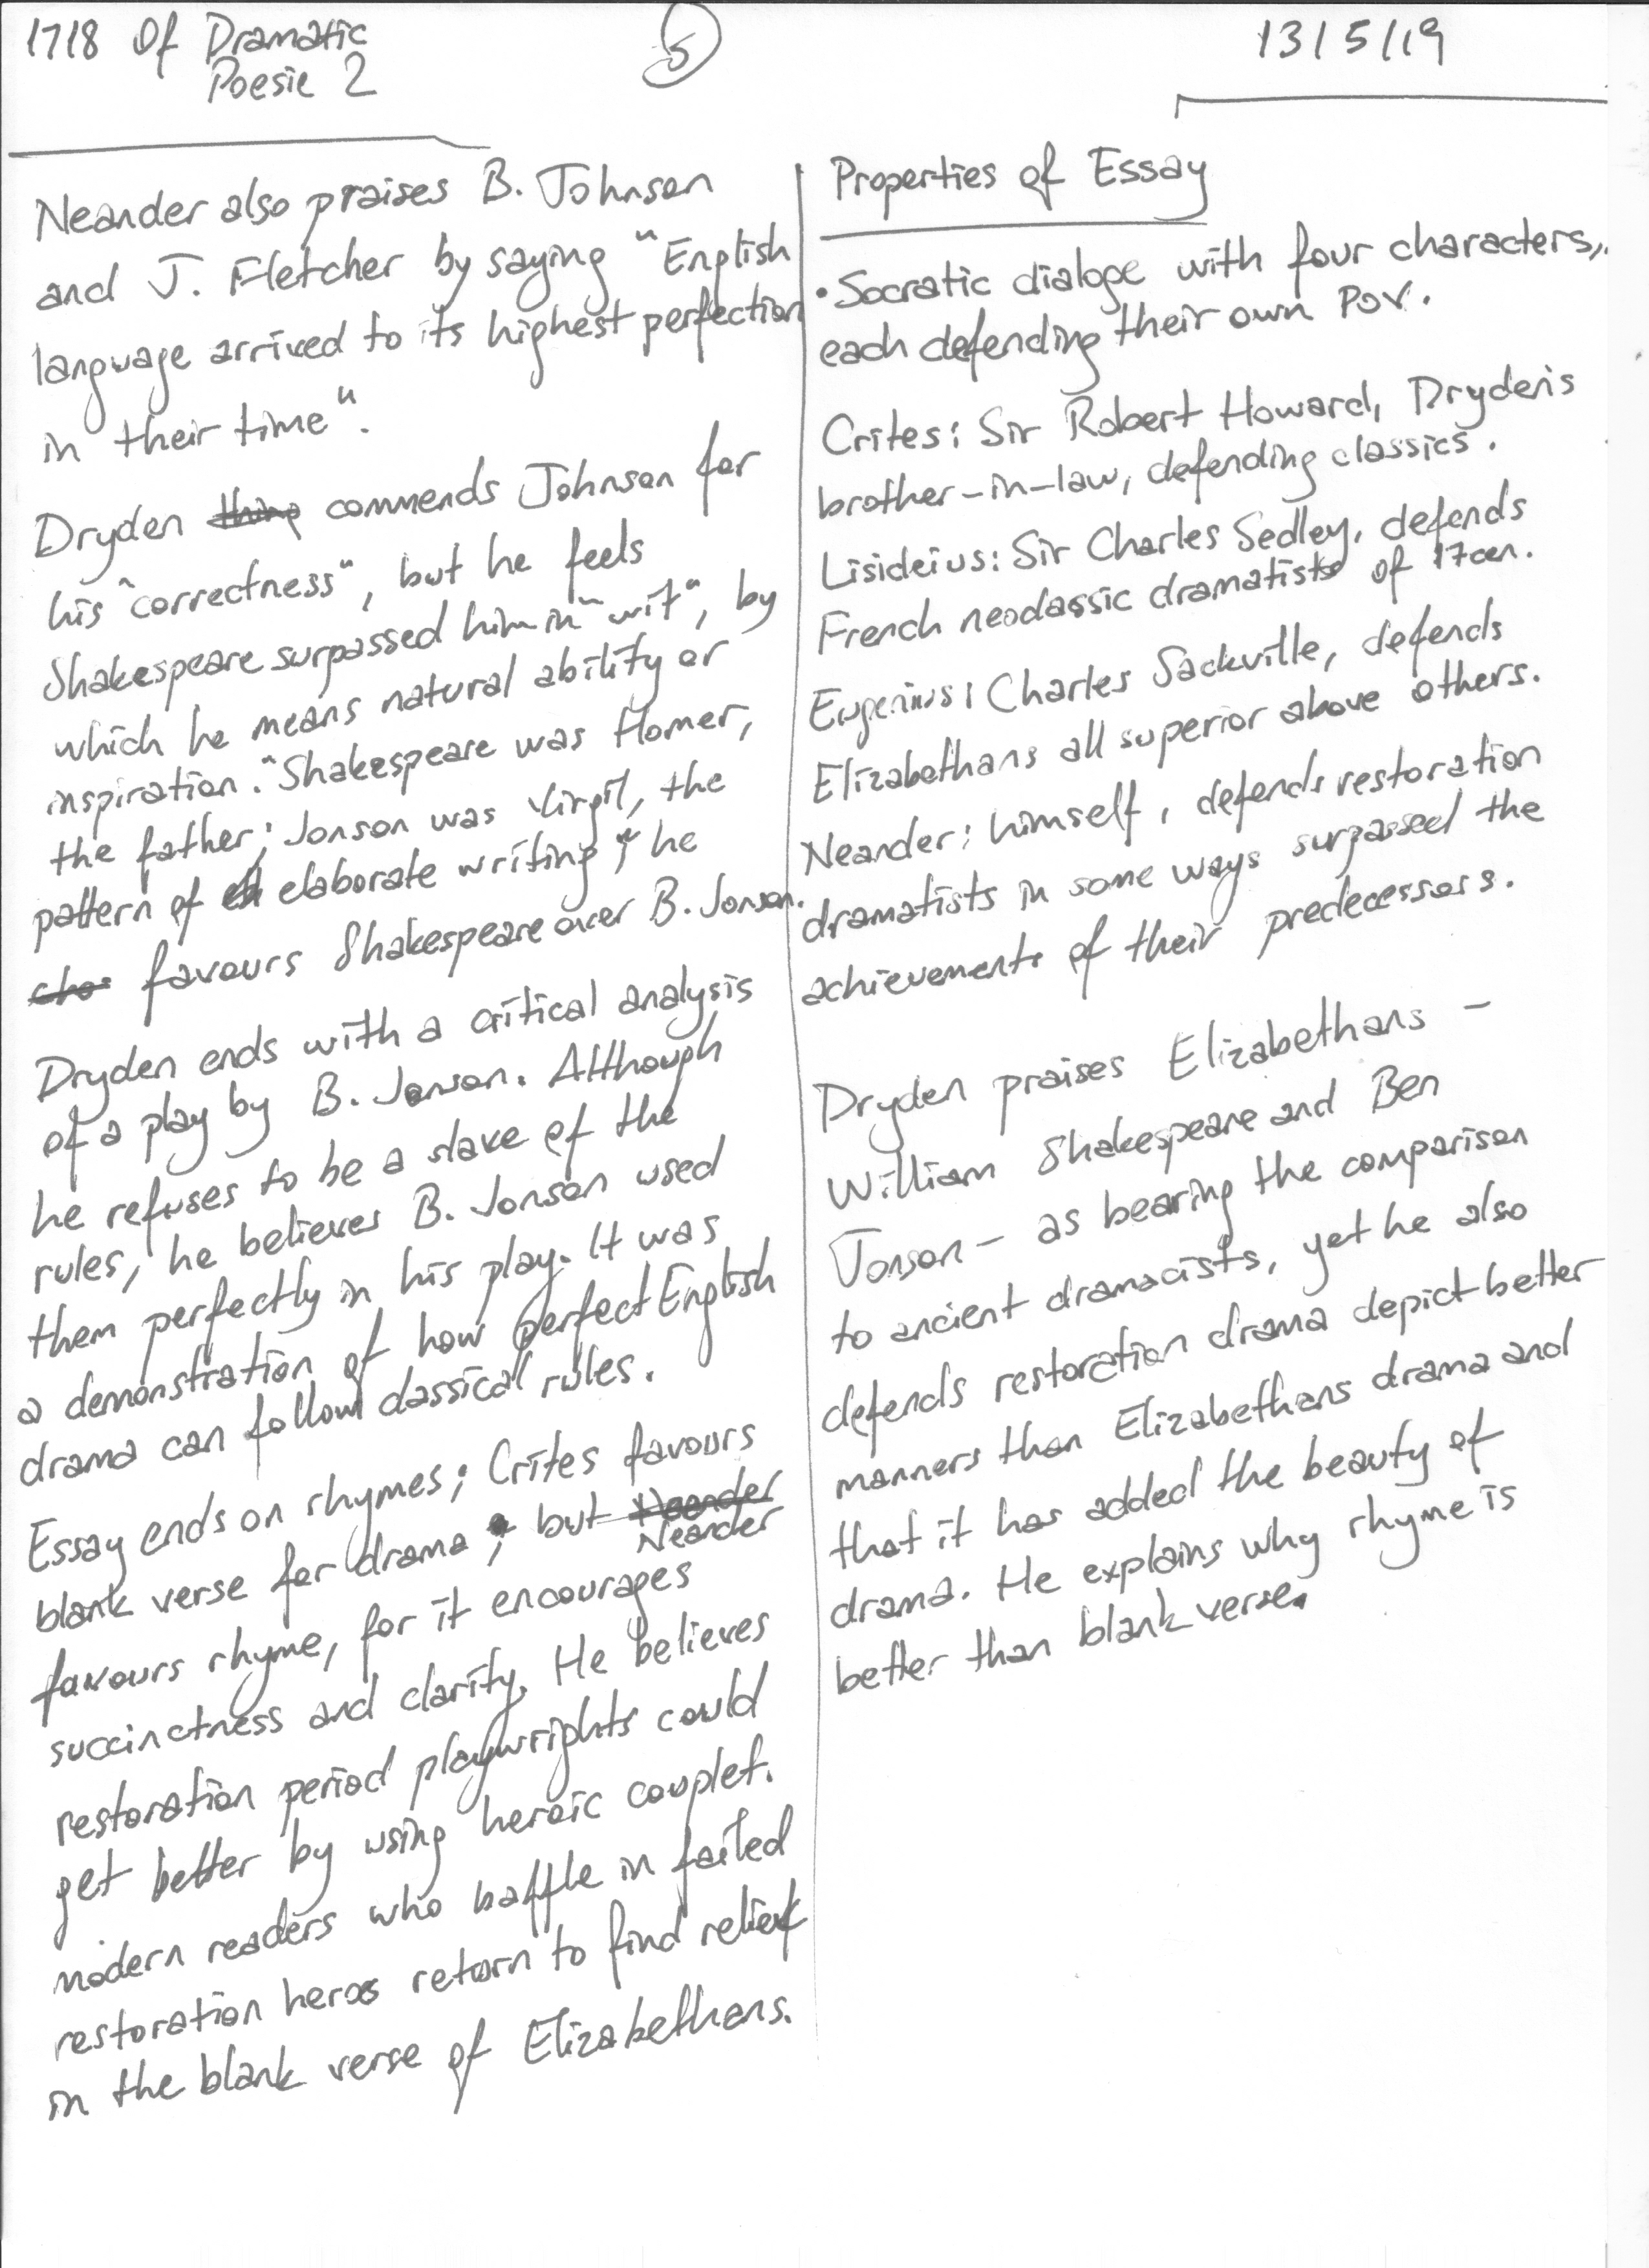 1718 Of Dramatic
Poesie 2
5
13/5/19
Neander also praises B. Johnson
and J. Fletcher by saying "English
language arrived to its highest perfection
in their time".
Dryden thing commends Johnson for
his "correctness", but he feels
Shakespeare surpassed him in "wit", by
which he means natural ability or
inspiration. "Shakespeare was Homer,
the father; Jonson was Virgil, the
pattern of elaborate writing", he
favours Shakespeare over B. Jonson.
Dryden ends with a critical analysis
of a play by B. Jonson. Although
he refuses to be a slave of the
rules, he believes B. Jonson used
them perfectly in his play. It was
a demonstration of how perfect English
drama can follow classical rules.
Essay ends on rhymes; Crites favours
blank verse for drama; but Neander
Neander
favours rhyme, for it encourages
succinctness and clarity. He believes
restoration period playwrights could
get better by using heroic couplet.
modern readers who baffle in failed
restoration heros return to find relief
in the blank verse of Elizabethans.
Properties of Essay
• Socratic dialoge with four characters,
each defending their own POV.
Crites: Sir Robert Howard, Dryden's
brother-in-law, defending classics.
Lisideius: Sir Charles Sedley, defends
French neoclassic dramatists of 17cen.
Eugenius: Charles Sackville, defends
Elizabethans all superior above others.
Neander: himself, defends restoration
dramatists in some ways surpassed the
achievements of their predecessors.
Dryden praises Elizabethans -
William Shakespeare and Ben
Jonson - as bearing the comparison
to ancient dramacists, yet he also
defends restoration drama depict better
manners than Elizabethans drama and
that it has added the beauty of
drama. He explains why rhyme is
better than blank verse.